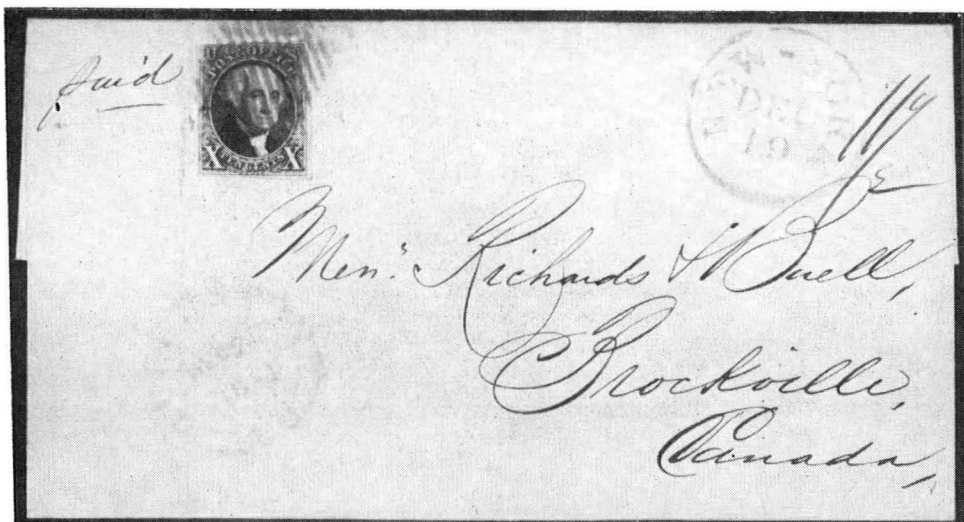 paid
POST OFFICE
X X
NEW YORK
DEC
10
Richards & Buell,
Brockville,
Canada,